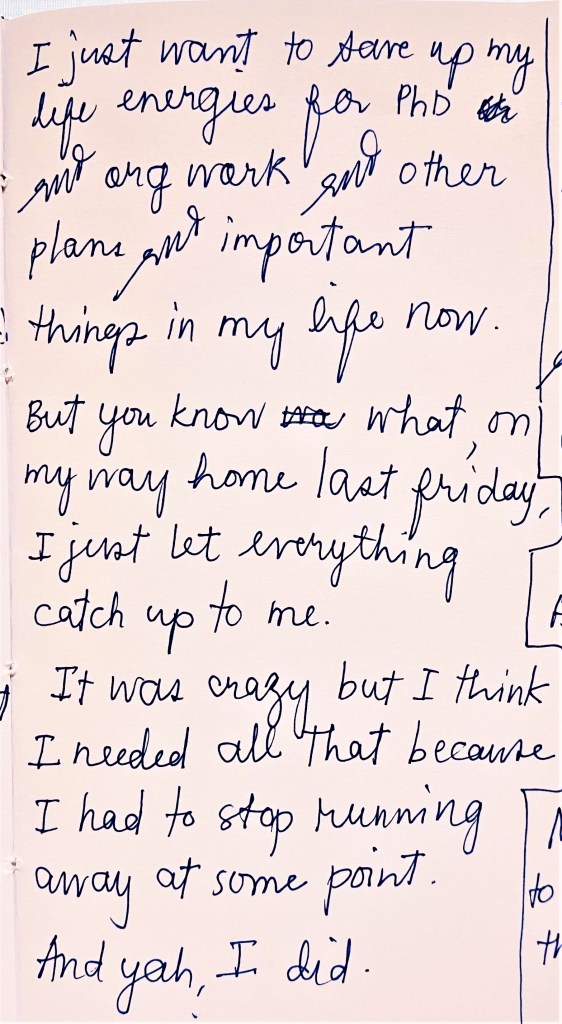 I just want to save up my
life energies for PhD
and org work and other
plans and important
things in my life now.
But you know what, on
my way home last friday,
I just let everything
catch up to me.
It was crazy but I think
I needed all that because
I had to stop running
away at some point.
And yah, I did.
to